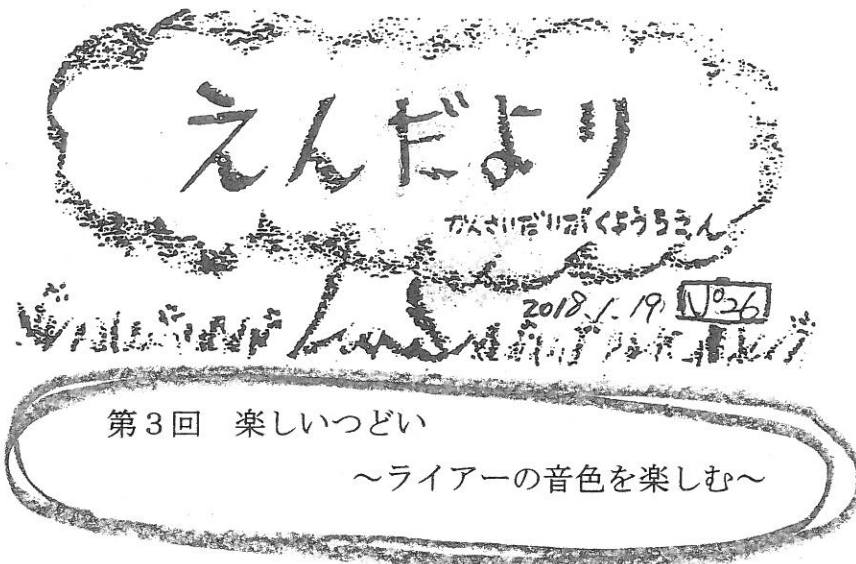 えんだより
かんさいだいがくようちえん
2018.1.19 No.26
第3回 楽しいつどい
~ライアーの音色を楽しむ~